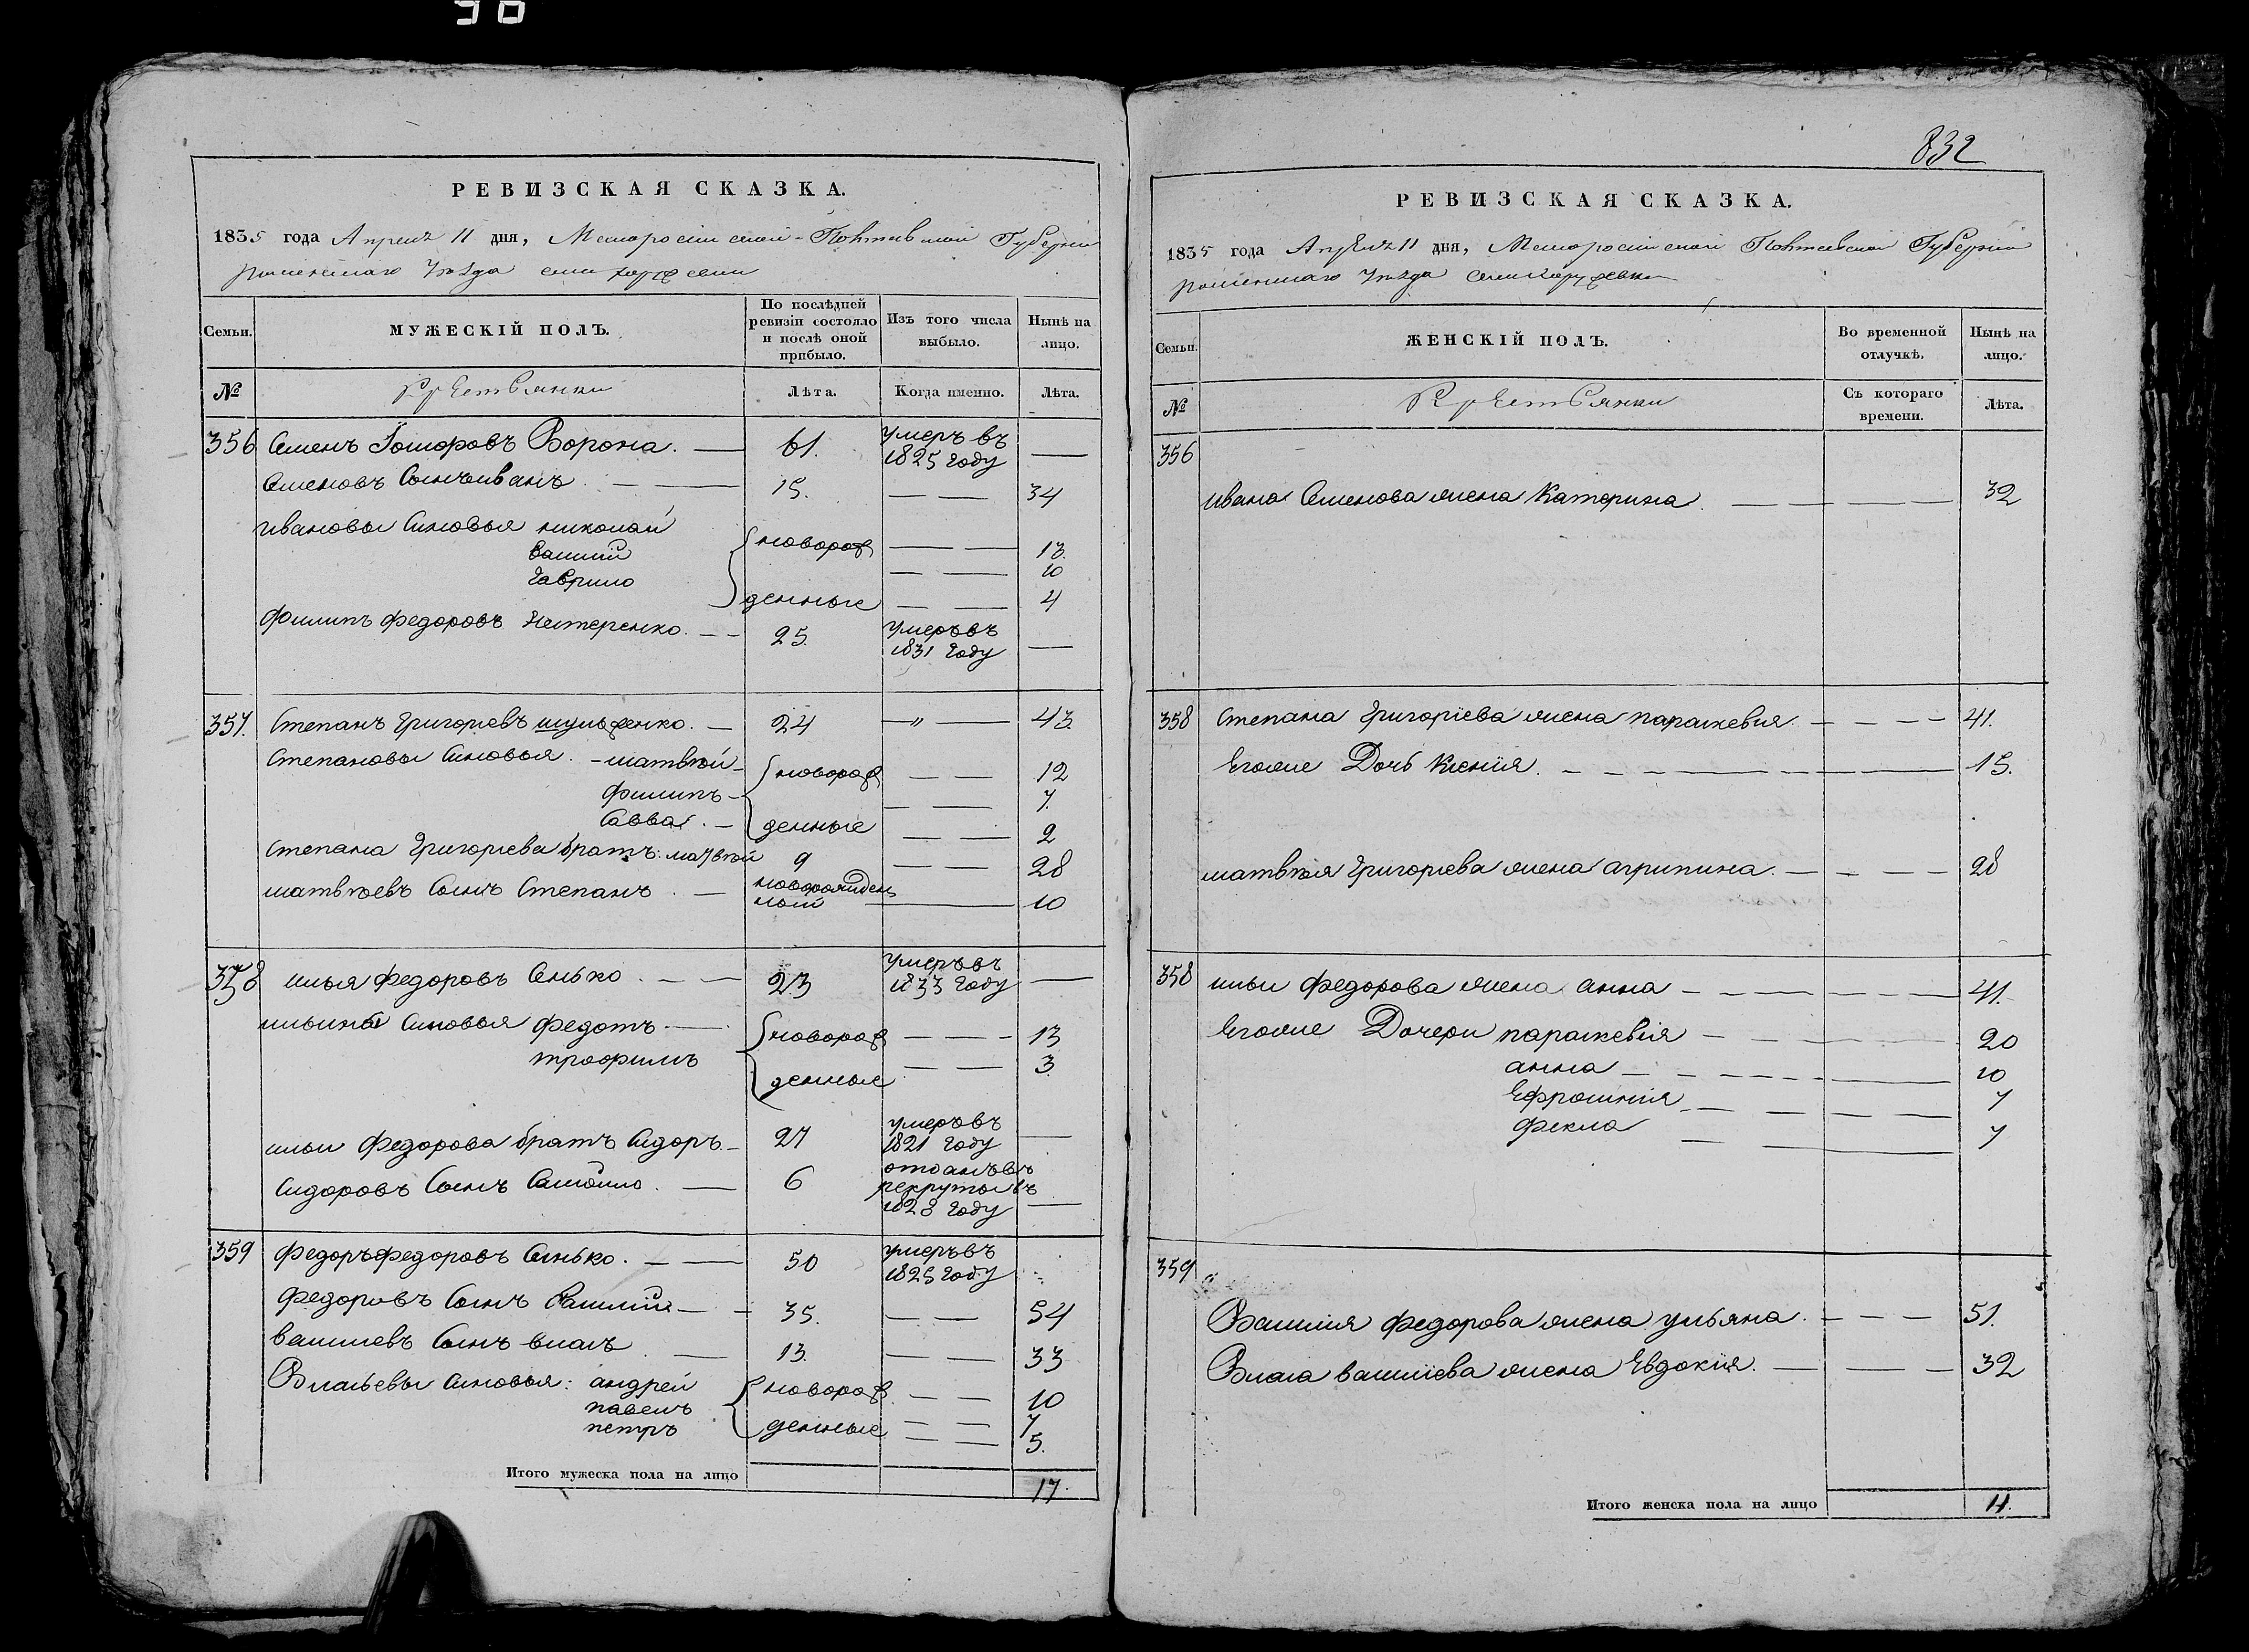 832
РЕВИЗСКАЯ СКАЗКА.
1835 года Апреля 11 дня, Малоросійской Полтавской Губерніи
роменскаго Уѣзда
Семьи.
МУЖЕСКІЙ ПОЛЪ.
По послѣдней ревизіи состояло и послѣ оной прибыло.
Изъ того числа выбыло.
Нынѣ на лицо.
№
Лѣта.
Когда именно.
Лѣта.
356 Семенъ Ворона. — 61. умеръ въ 1825 году —
Семеновъ Сынъ иванъ — 15. — — 34
Ивановы Сыновья николай новорож — — 13.
василий — — 10
гаврило денные — — 4
Филипъ Федоровъ Нестеренко. — — 25. умеръ въ 1831 году —
357. Степанъ Григорьевъ шульженко. — 24 —„— 43.
Степановы Сыновья. — матвѣй — новорож — — 12
филипъ — — — 7.
Савва. — денные — — 2
Степана Григорьева братъ: матвѣй 9 — — 28
матвѣевъ Сынъ Степанъ. — новорожден ный — 10
358 илья Федоровъ Сенько. — — 23 умеръ въ 1833 году —
ильины Сыновья Федотъ — новорож — — — 13
трофимъ денные — — 3.
ильи Федорова братъ Сидоръ. — 27 умеръ въ 1821 году —
Сидоровъ Сынъ Самойло. — 6 отданъ въ рекруты въ 1828 году —
359 Федоръ Федоровъ Сенько. — — 50 умеръ въ 1825 году
Федоровъ Сынъ Василий — — 35. — — 54
василиевъ Сынъ власъ — 13. — — 33
Власьевы Сыновья: андрей новорож — — 10
павелъ — — 7
петръ денные — — 5.
Итого мужеска пола на лицо 17.
РЕВИЗСКАЯ СКАЗКА.
1835 года Апреля 11 дня, Малоросійской Полтавской Губерніи
роменскаго Уѣзда
Семьи.
ЖЕНСКІЙ ПОЛЪ.
Во временной отлучкѣ.
Нынѣ на лицо.
№
Съ котораго времени.
Лѣта.
356
ивана Семенова жена Катерина. — — — — 32
358 Степана Григоріева жена параскевия. — — — — 41.
Егоже Дочь Ксенія. — — — — 15.
матвѣя Григорьева жена агрипина. — — — — 28
358 ильи Федорова жена анна — — — — 41.
Егоже Дочери параскевія — — — — 20
анна — — — — 10
Ефросинія — — — — 7
Фекла — — 7
359
Василия Федорова жена ульяна. — — — 51.
Власа василіева жена Евдокія. — — — 32
Итого женска пола на лицо 11.